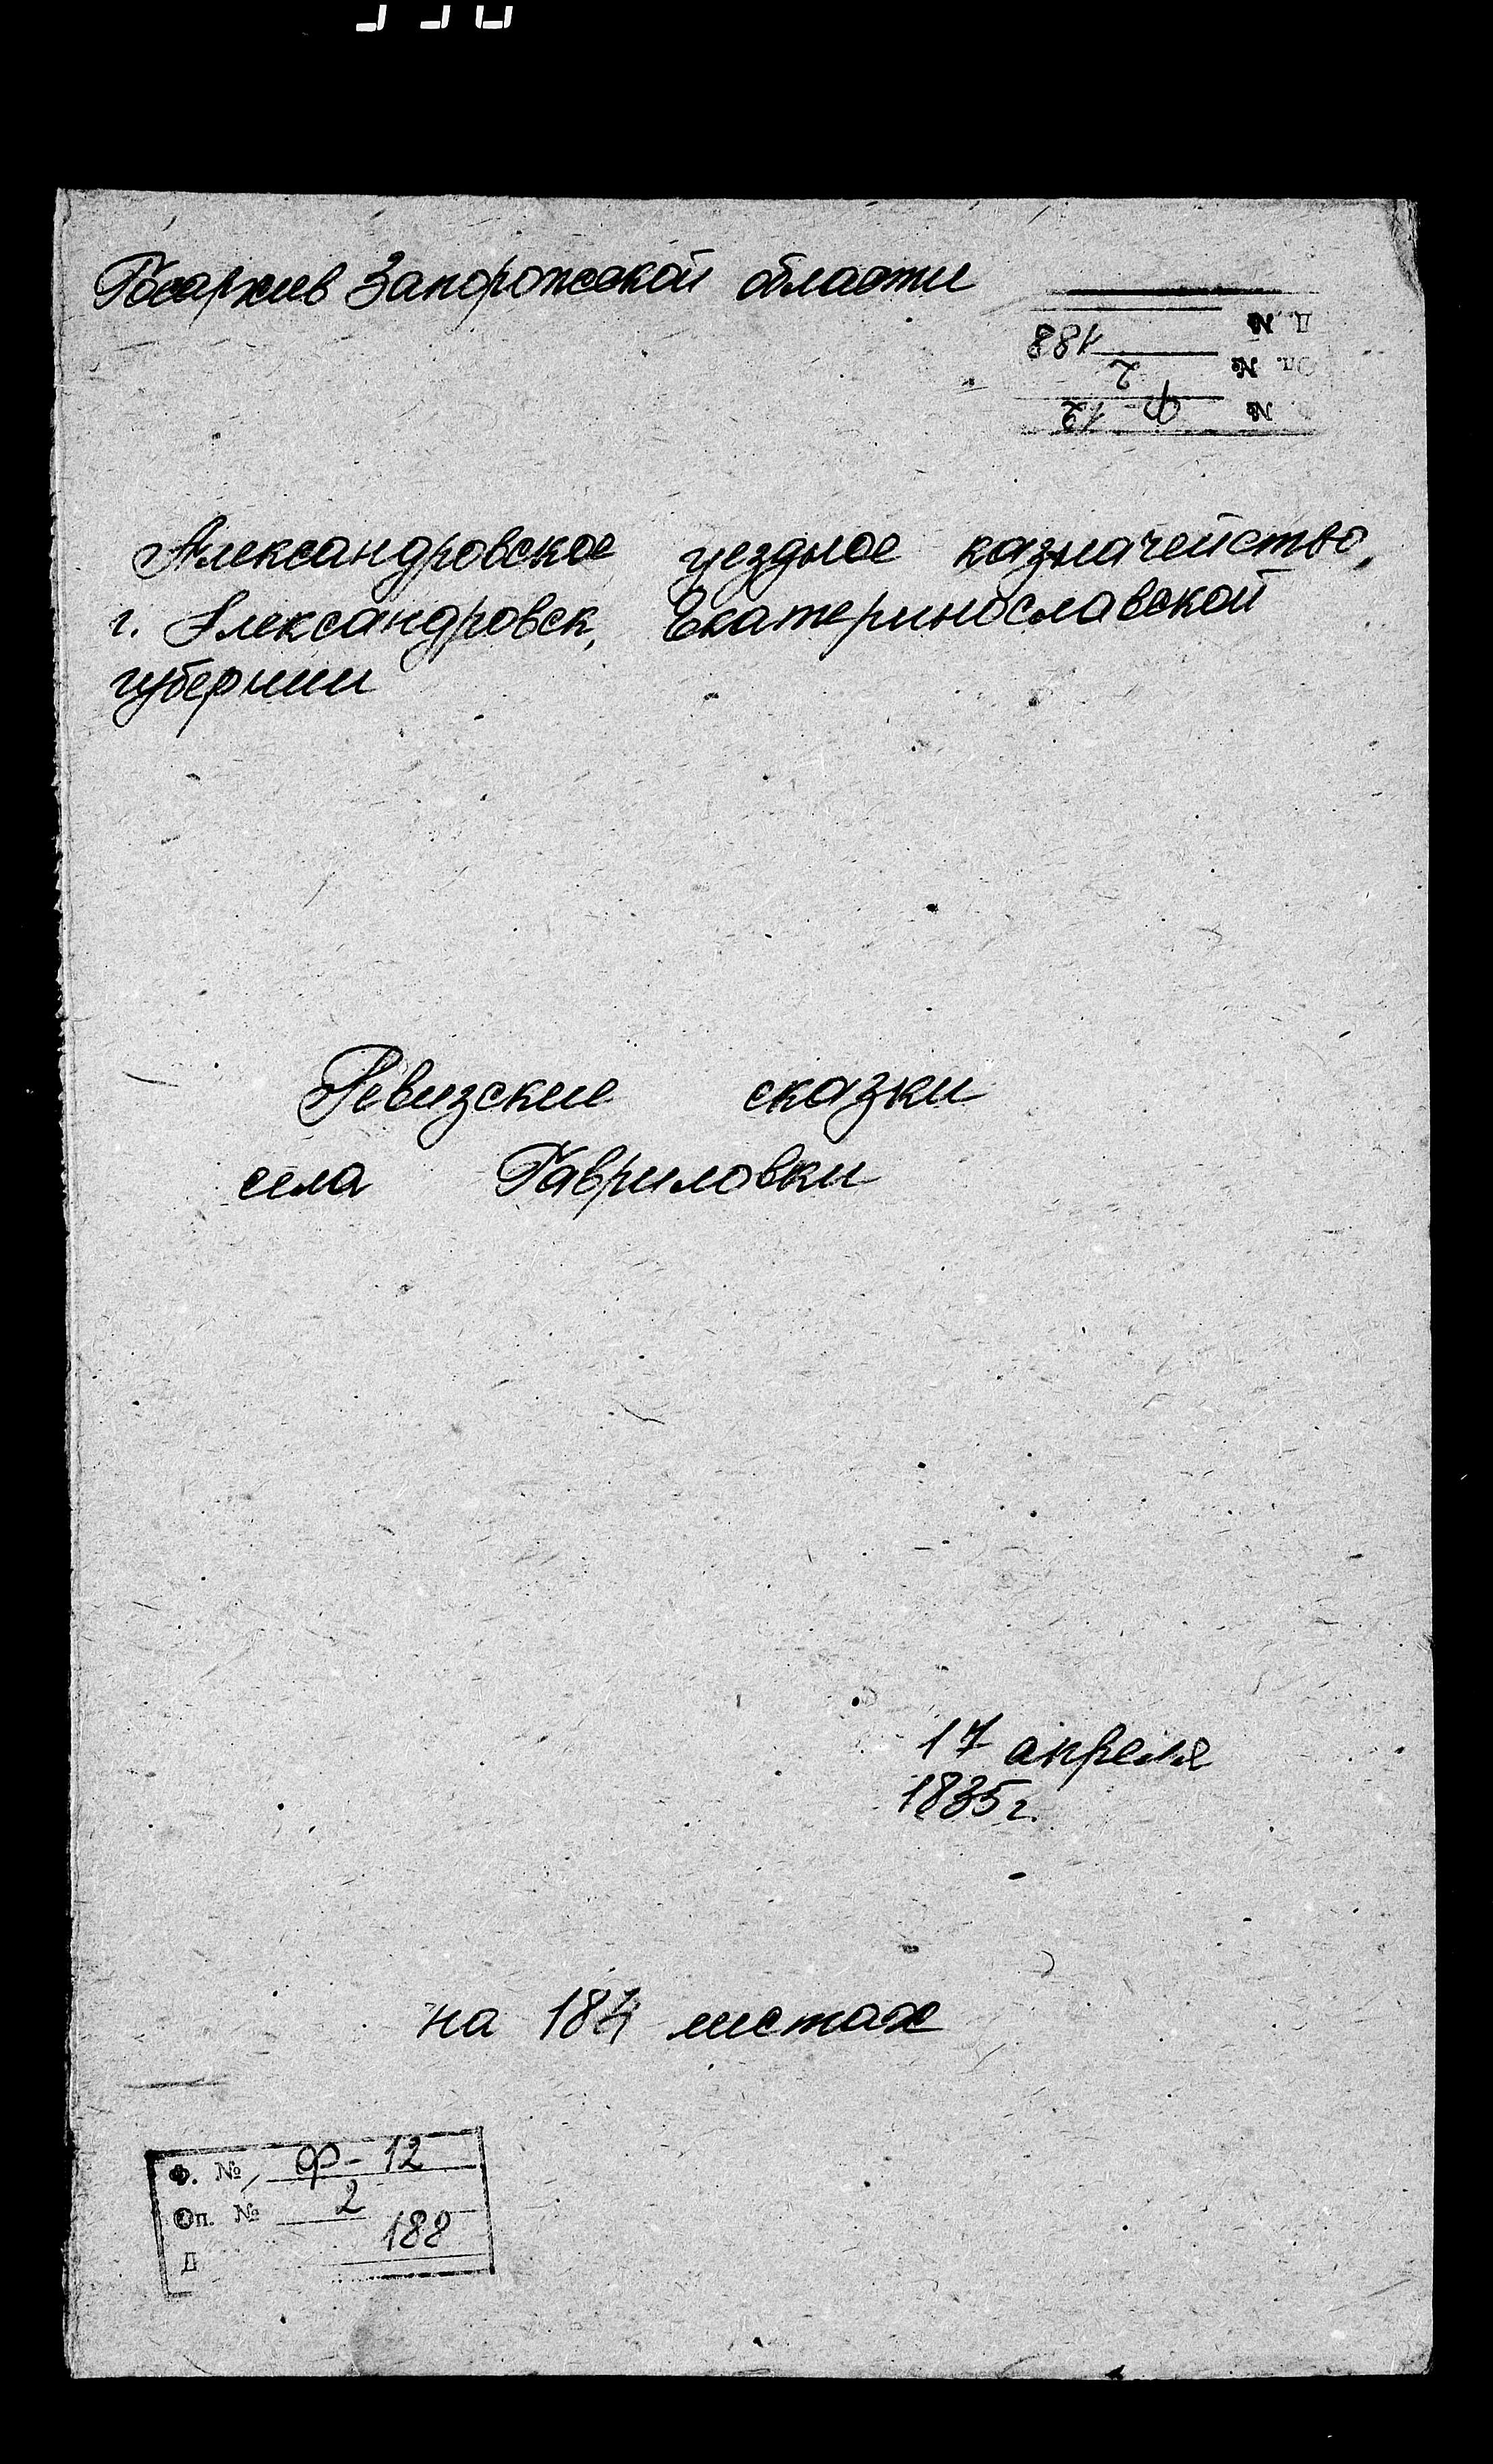 Госархив Запорожской области
Д. № 188
Оп. № 2
№ Ф-12
Александровское уездное казначейство,
г. Александровск, Екатеринославской
губернии
Ревизские сказки
села Гавриловки
17 апреля
1835 г.
на 184 листах
Ф. № Ф-12
Оп. № 2
Д 188